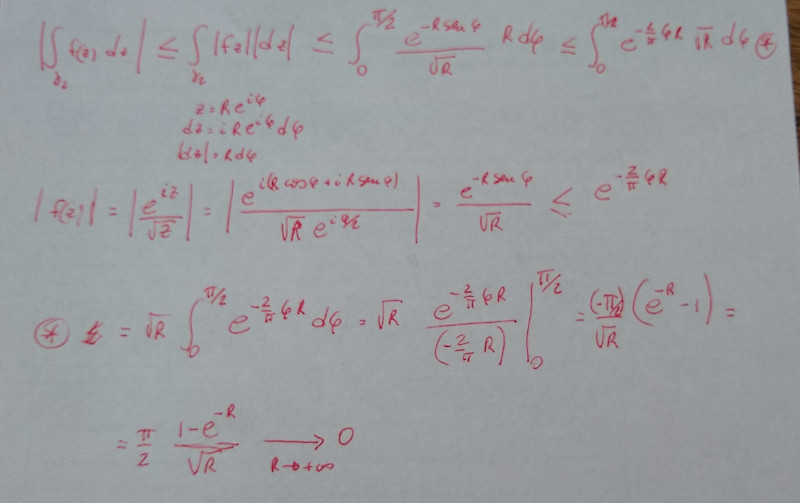 |∫_{γ₂} f(z) dz| ≤ ∫_{γ₂} |fz||dz| ≤ ∫_0^{π/2} e^{-R sen φ}/√R R dφ ≤ ∫_0^{π/2} e^{-2/π φR} √R dφ ⊛
z = R e^{iφ}
dz = i R e^{iφ} dφ
|dz| = R dφ
|f(z)| = |e^{iz}/√z| = |e^{i(R cos φ + i R sen φ)}/(√R e^{iφ/2})| = e^{-R sen φ}/√R ≤ e^{-2/π φR}
⊛ = √R ∫_0^{π/2} e^{-2/π φR} dφ = √R e^{-2/π φR}/(-2/π R) |_0^{π/2} = (-π/2)/√R (e^{-R} - 1) =
= π/2 (1-e^{-R})/√R ⟶_{R→+∞} 0